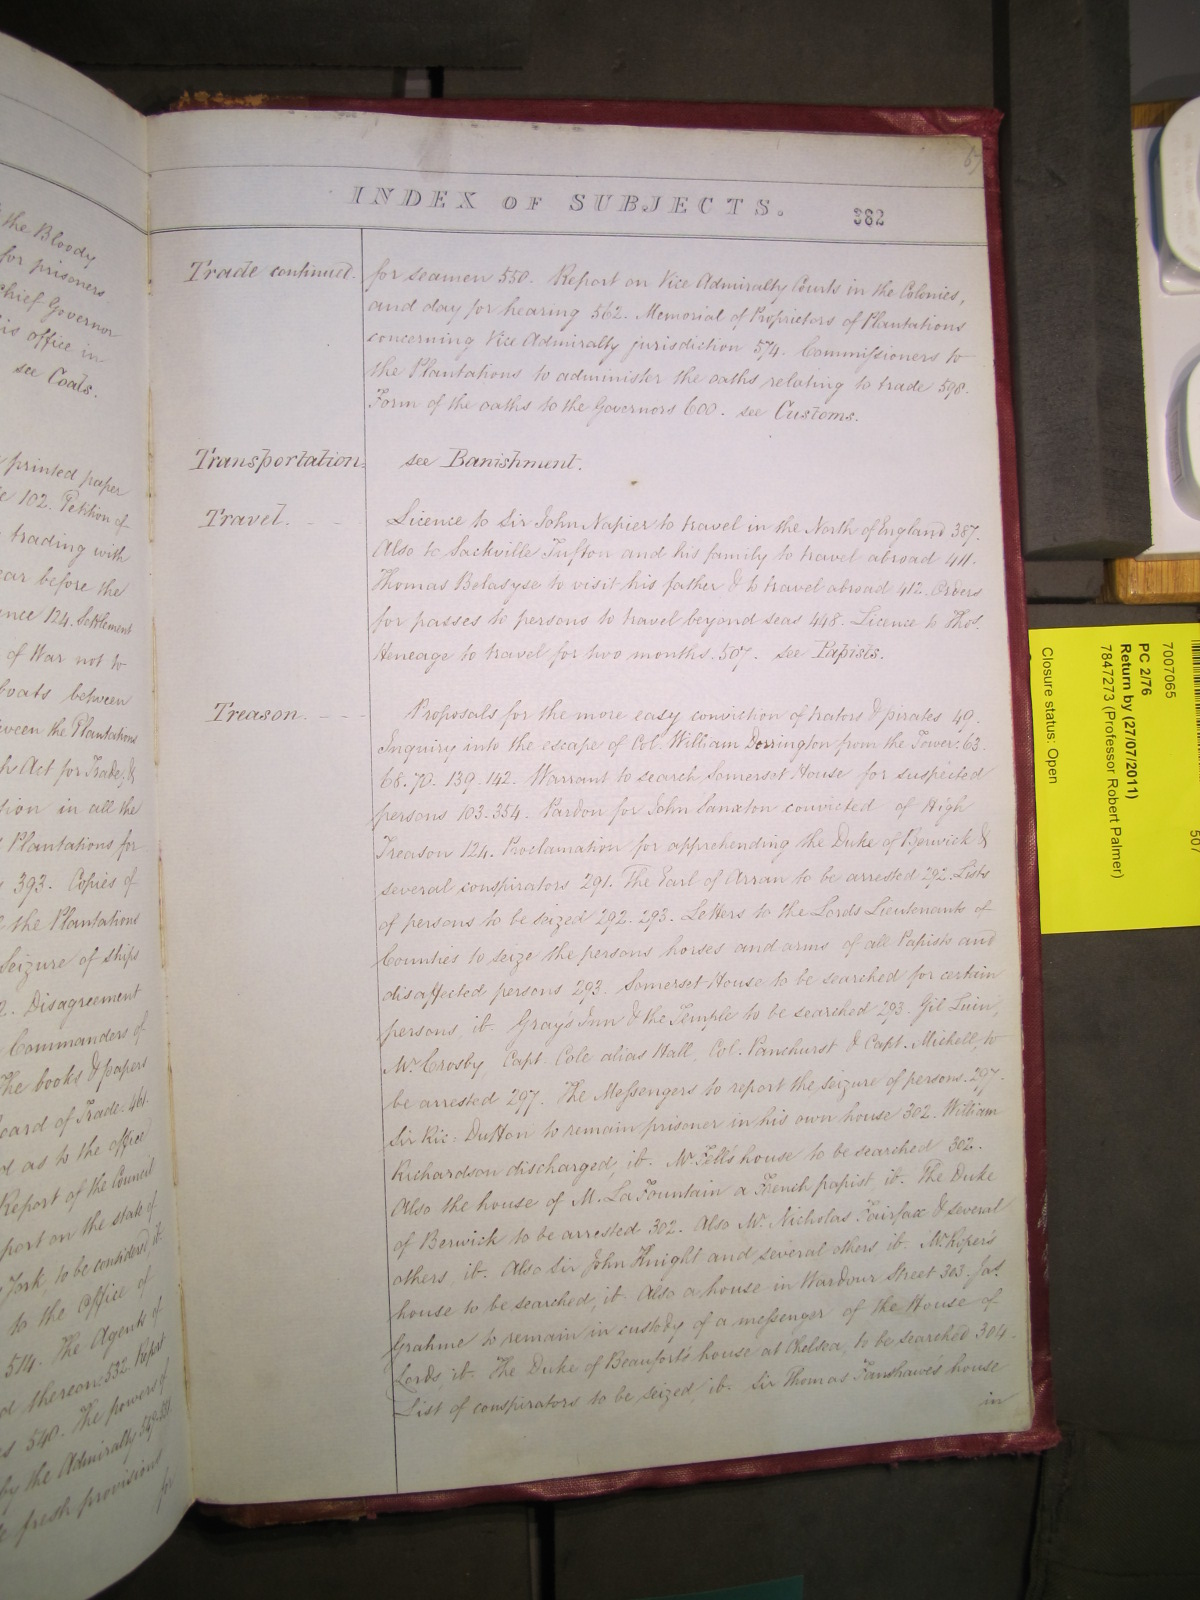 the Bloody
for prisoners
Chief Governor
his office in
see Coals.
printed paper
102. Petition of
trading with
before the
124. Settlement
of War not to
boats between
between the Plantations
Act for Trade, &
in all the
Plantations for
393. Copies of
the Plantations
Seizure of ships
Disagreement
Commanders of
The books & papers
Board of Trade. 461.
as to the office
Report of the Council
on the state of
York, to be considered, ib.
to the Office of
514. The Agents of
thereon. 532. Report
540. The powers of
by the Admiralty
fresh provisions
for
67
INDEX OF SUBJECTS. 382
Trade continued. for seamen 550. Report on Vice Admiralty Courts in the Colonies,
and day for hearing 562. Memorial of Proprietors of Plantations
concerning Vice Admiralty jurisdiction 574. Commissioners to
the Plantations to administer the oaths relating to trade 598.
Form of the oaths to the Governors 600. see Customs.
Transportation. see Banishment.
Travel. Licence to Sir John Napier to travel in the North of England 387.
Also to Sackville Tufton and his family to travel abroad 411.
Thomas Belasyse to visit his father & to travel abroad 412. Orders
for passes to persons to travel beyond seas 448. Licence to Thos.
Heneage to travel for two months. 507. see Papists.
Treason. Proposals for the more easy conviction of trators & pirates 49.
Inquiry into the escape of Col. William Dorrington from the Tower. 63.
68. 70. 139. 142. Warrant to search Somerset House for suspected
persons 103. 354. Pardon for John convicted of High
Treason 124. Proclamation for apprehending the Duke of Berwick &
several conspirators 291. The Earl of Arran to be arrested 292. Lists
of persons to be seized 292. 293. Letters to the Lords Lieutenants of
Counties to seize the persons horses and arms of all Papists and
disaffected persons 293. Somerset House to be searched for certain
persons ib. Gray's Inn & the Temple to be searched 293. Gil
Mr. Crosby, Capt. Cole alias Hall, Col. Panchurst & Capt. Michell, to
be arrested 297. The Messengers to report the seizure of persons. 297.
Sir Ric: Dutton to remain prisoner in his own house 302. William
Richardson discharged, ib. Mr. Fell's house to be searched 302.
Also the house of M. La Fountain a French papist ib. The Duke
of Berwick to be arrested 302. Also Mr. Nicholas Fairfax & several
others, ib. Also Sir John Knight and several others ib. Mr.
house to be searched, ib. Also a house in Wardour Street 303. Jas.
Grahme to remain in custody of a messenger of the House of
Lords, ib. The Duke of Beaufort's house at Chelsea, to be searched 304.
List of conspirators to be seized, ib. Sir Thomas Fanshawe's house
in
7007065
PC 2/76
Return by (27/07/2011)
7847273 (Professor Robert Palmer)
Closure status: Open
507